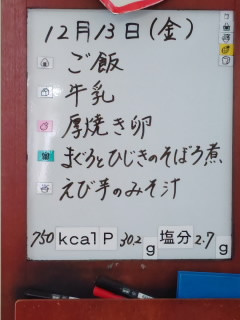 12月13日(金)
ご飯
牛乳
厚焼き卵
まぐろとひじきのそぼろ煮
えび芋のみそ汁
750 kcal P 30.2 g 塩分 2.7 g